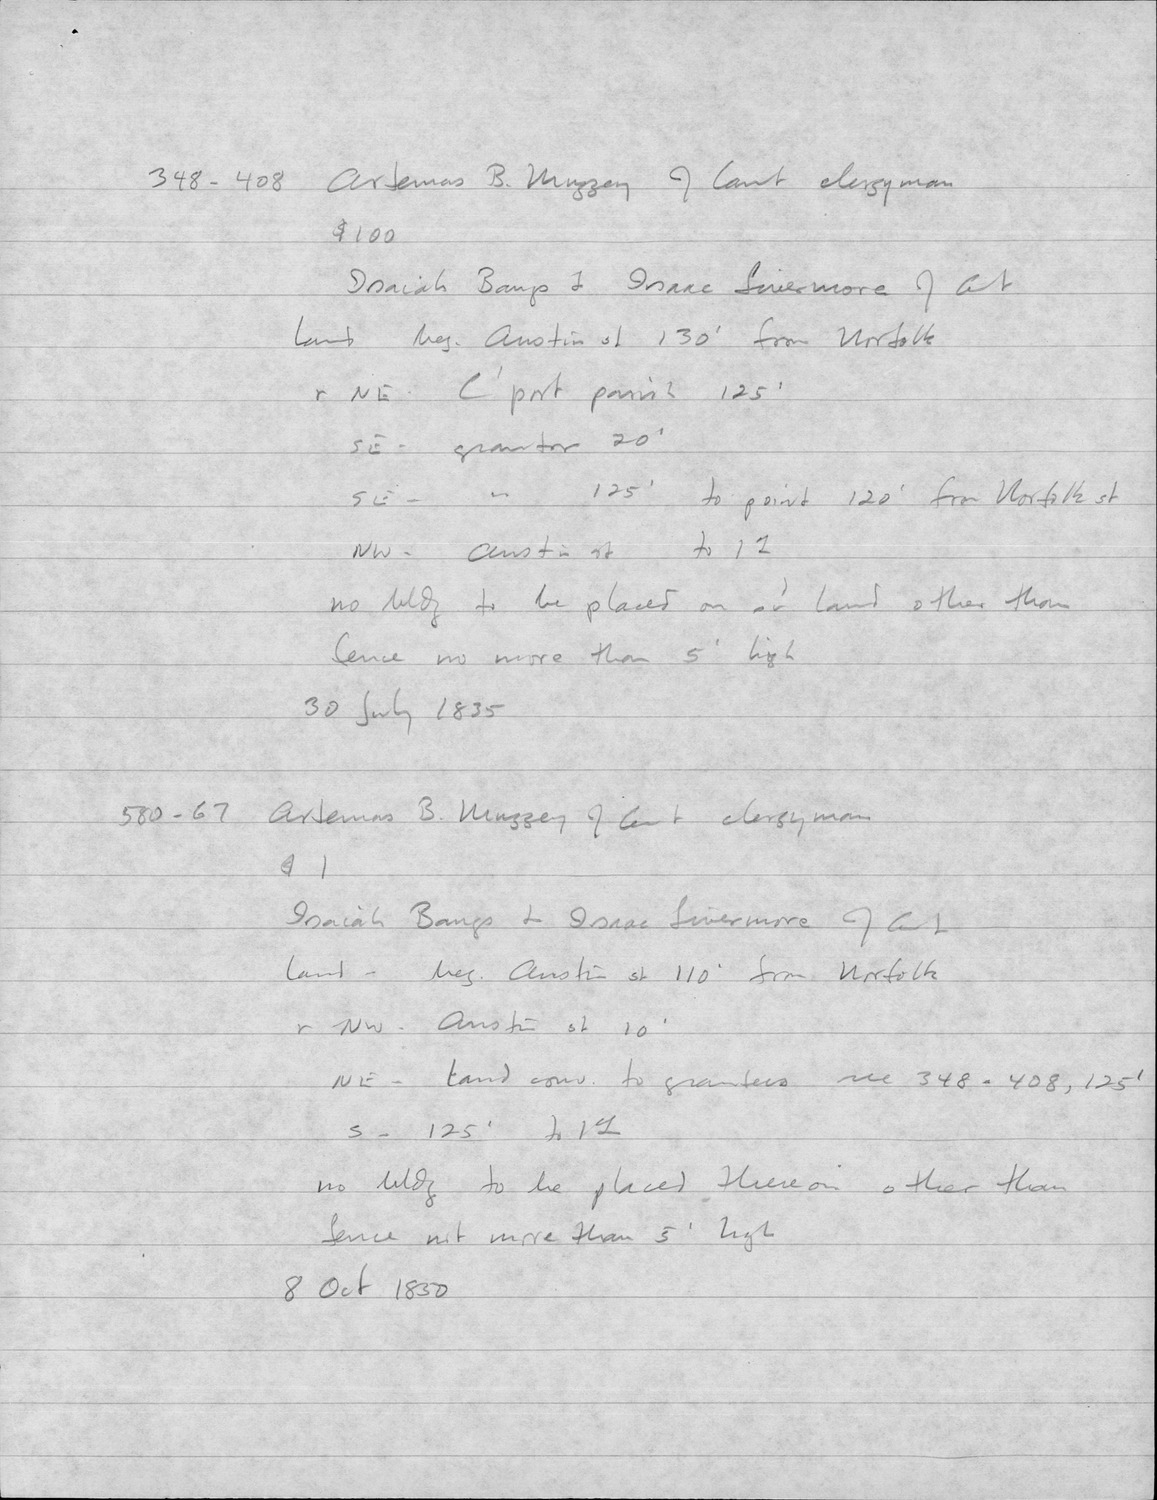 348-408 Artemas B. Muzzey of Camb clergyman
$100
Isaiah Bangs & Isaac Livermore of Camb
land beg. Austin st 130' from Norfolk
r NE - C'port parish 125'
SE - grantor 20'
SE - " 125' to point 120' from Norfolk st
NW - Austin st to 1st
no bldg to be placed on sd land other than
fence no more than 5' high
30 July 1835
580-67 Artemas B. Muzzey of Camb clergyman
$1
Isaiah Bangs & Isaac Livermore of Camb
land - beg. Austin st 110' from Norfolk
r NW - Austin st 10'
NE - land conv. to grantees see 348-408, 125'
S - 125' to 1st
no bldg to be placed thereon other than
fence not more than 5' high
8 Oct 1850